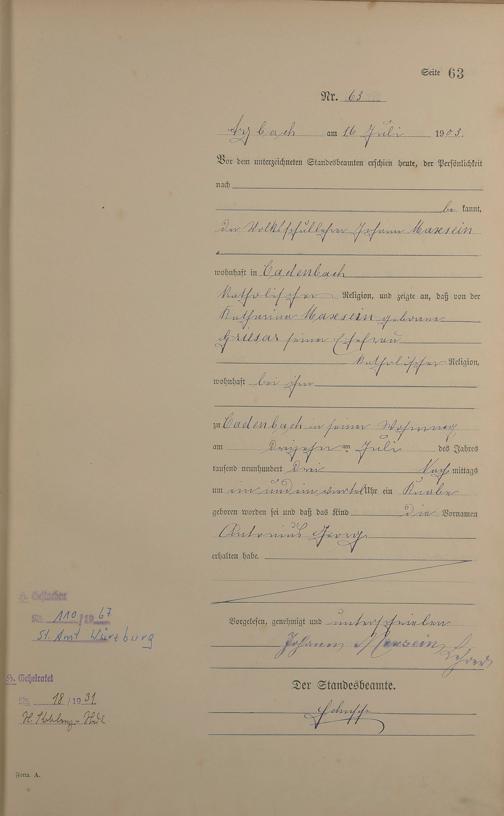 Seite 63
Nr. 63
Arzbach am 16 Juli 1903.
Vor dem unterzeichneten Standesbeamten erschien heute, der Persönlichkeit
nach
be kannt,
der Volksschullehrer Johann Maxsein
wohnhaft in Cadenbach
katholischer Religion, und zeigte an, daß von der
Katharina Maxsein geborene
seiner Ehefrau
katholischer Religion,
wohnhaft bei ihm
zu Cadenbach in seiner Wohnung
am dreizehn ten Juli des Jahres
tausend neunhundert drei Nach mittags
um ein und ein viertel Uhr ein Knabe
geboren worden sei und daß das Kind die Vornamen
Antonius Georg
erhalten habe.
Vorgelesen, genehmigt und unterschrieben
Johann Maxsein, Lehrer
Der Standesbeamte.
H. Gestorben
Nr. 110/1967
St. Amt Würzburg
H. Geheiratet
Nr. 18/1931
Form. A.